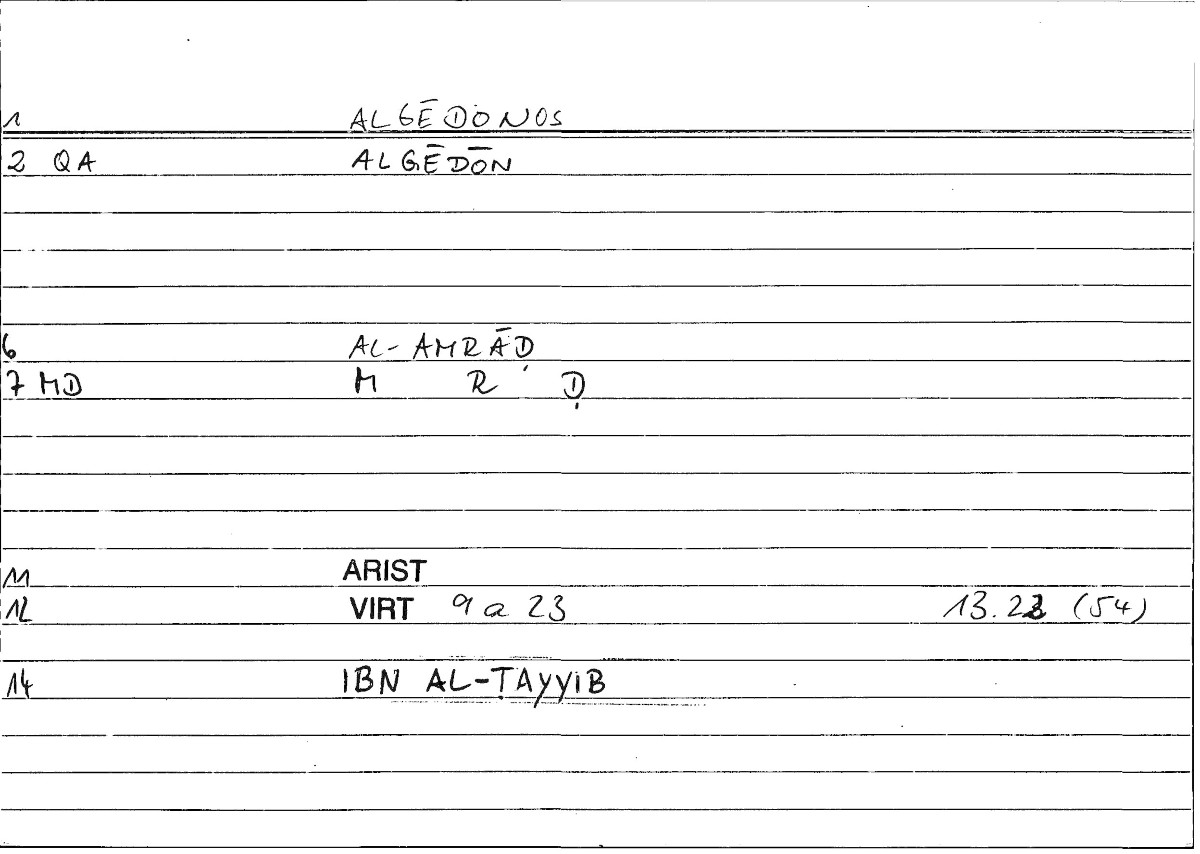 1 ALGĒDONOS
2 QA ALGĒDŌN
6 AL-AMRĀḌ
7 MD M R Ḍ
11 ARIST
12 VIRT 9 a 23 (54)
14 IBN AL-ṬAYYIB